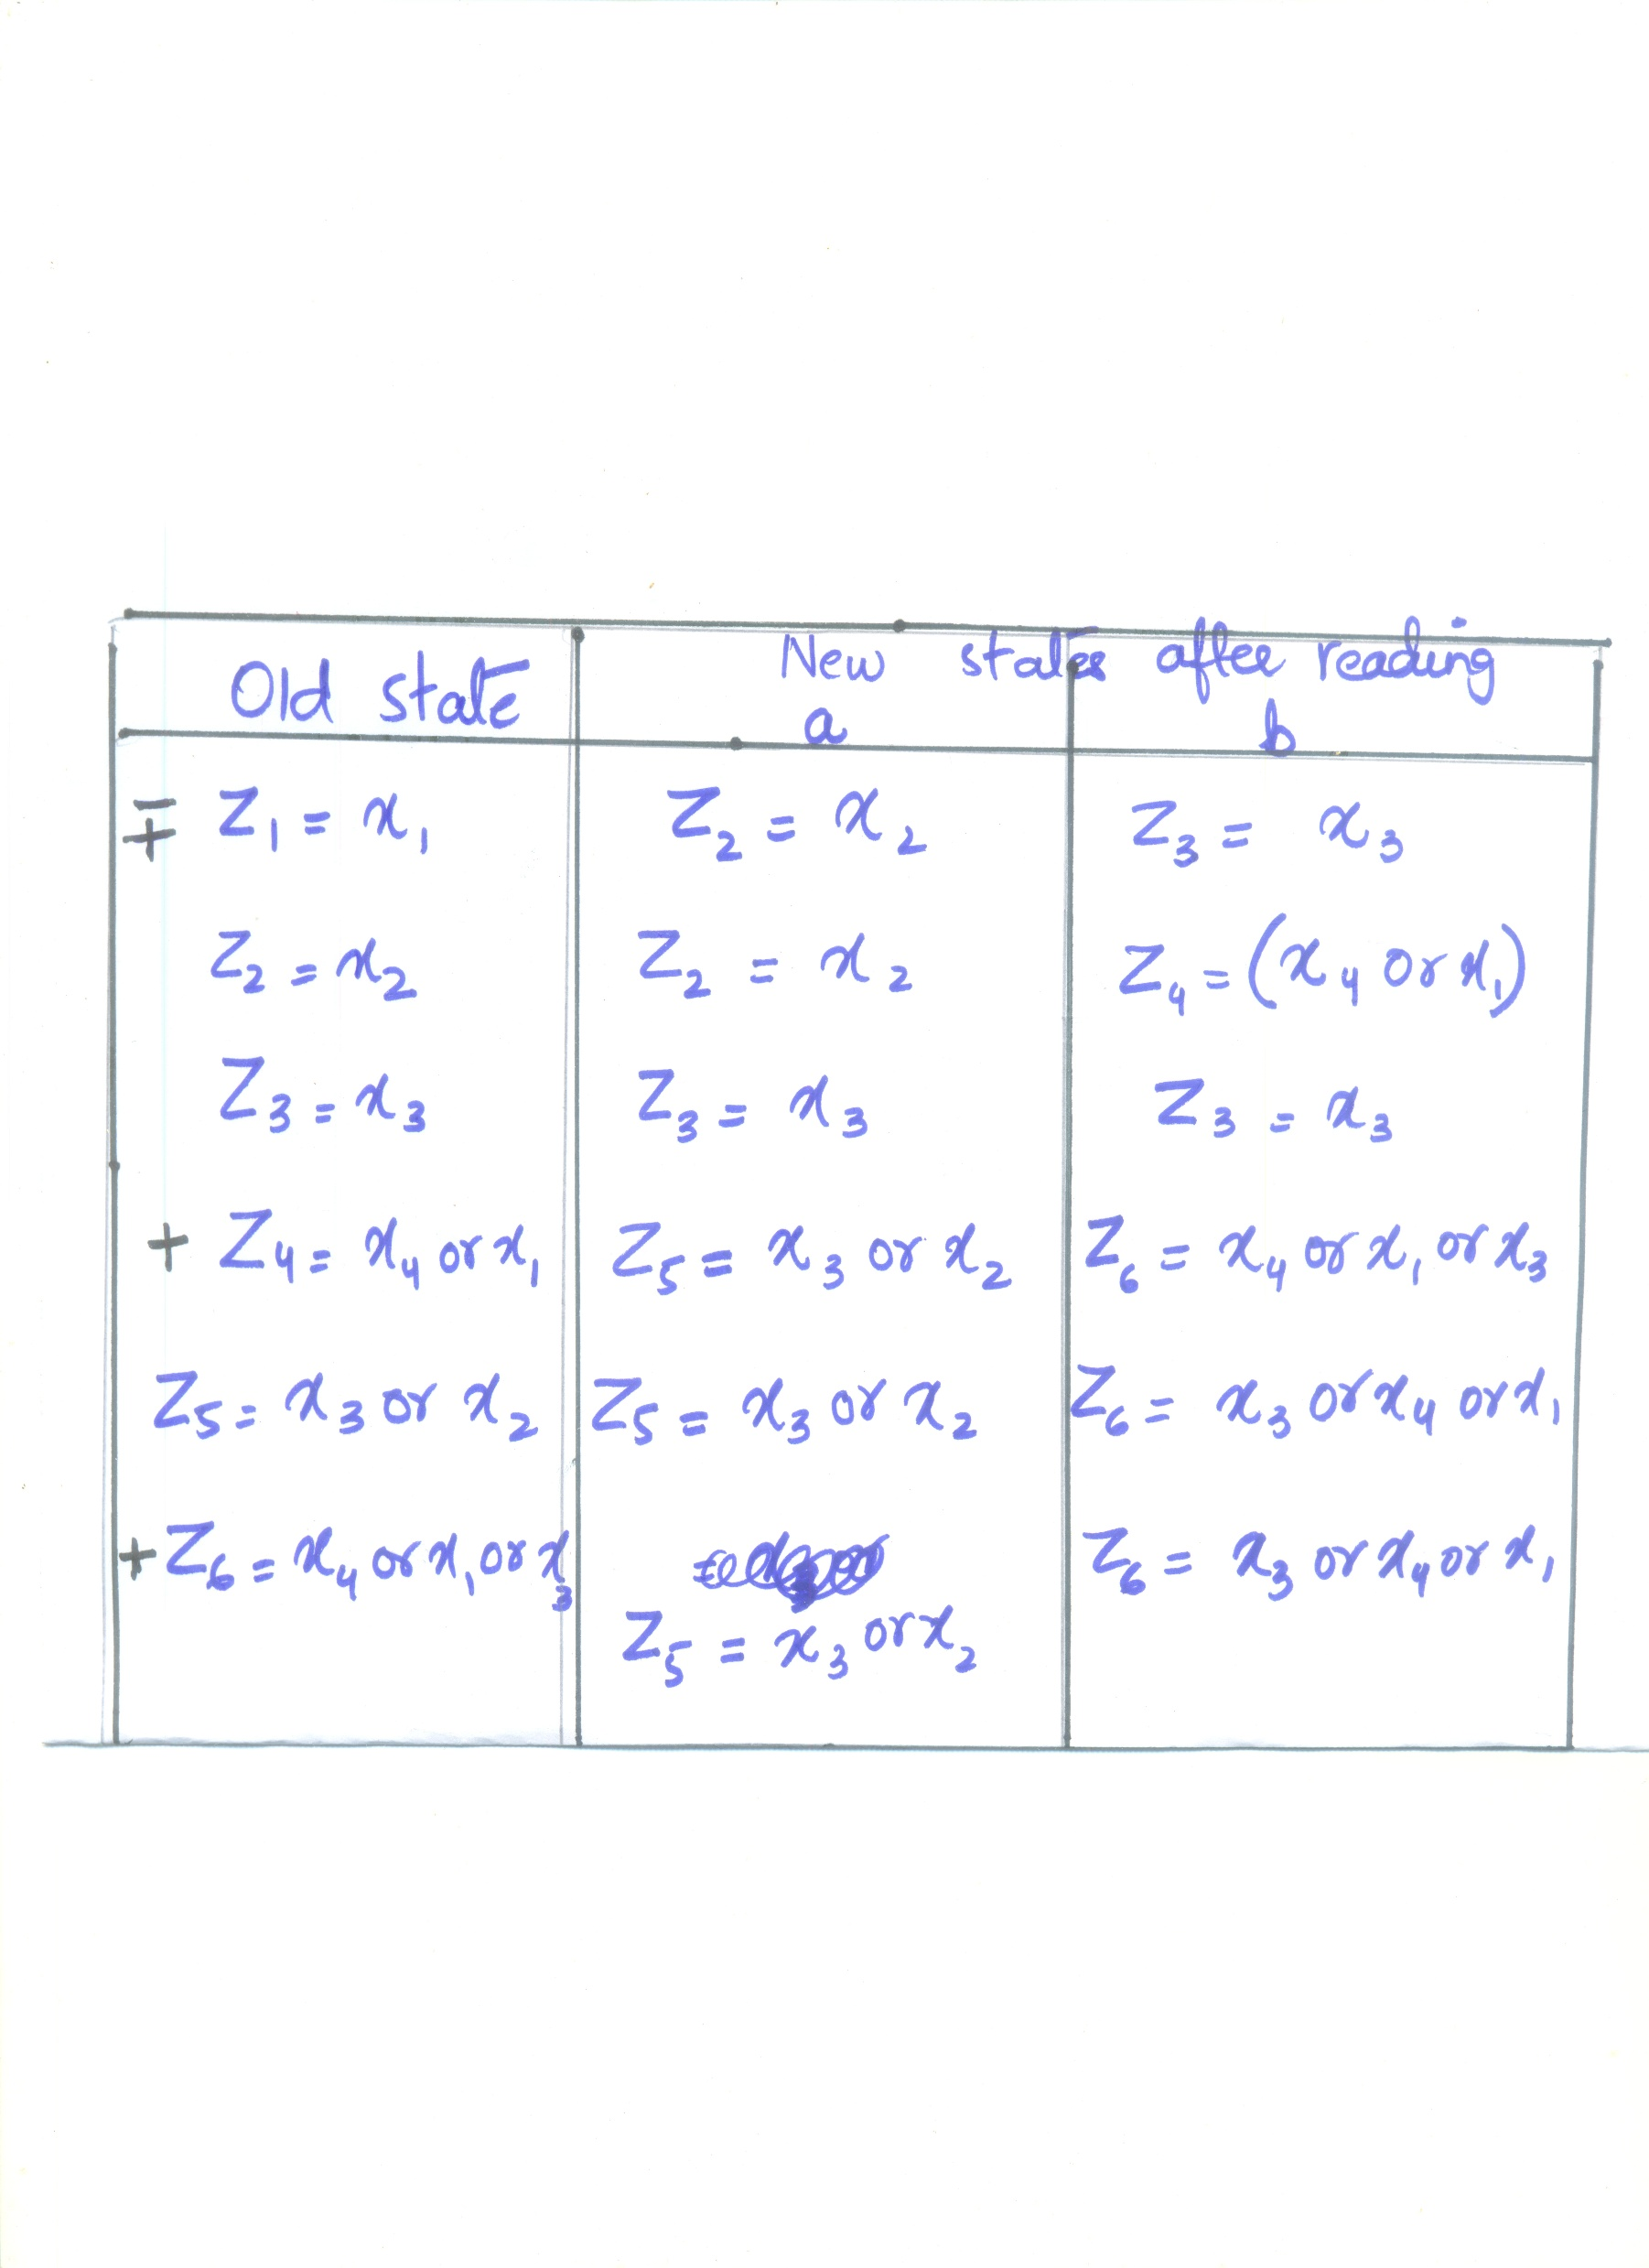 Old state New states after reading
a b
∓ Z₁ = x₁ Z₂ = x₂ Z₃ = x₃
Z₂ = x₂ Z₂ = x₂ Z₄ = (x₄ or x₁)
Z₃ = x₃ Z₃ = x₃ Z₃ = x₃
+ Z₄ = x₄ or x₁ Z₅ = x₃ or x₂ Z₆ = x₄ or x₁ or x₃
Z₅ = x₃ or x₂ Z₅ = x₃ or x₂ Z₆ = x₃ or x₄ or x₁
+ Z₆ = x₄ or x₁ or x₃ Z₆ = x₃ or x₄ or x₁
Z₅ = x₃ or x₂